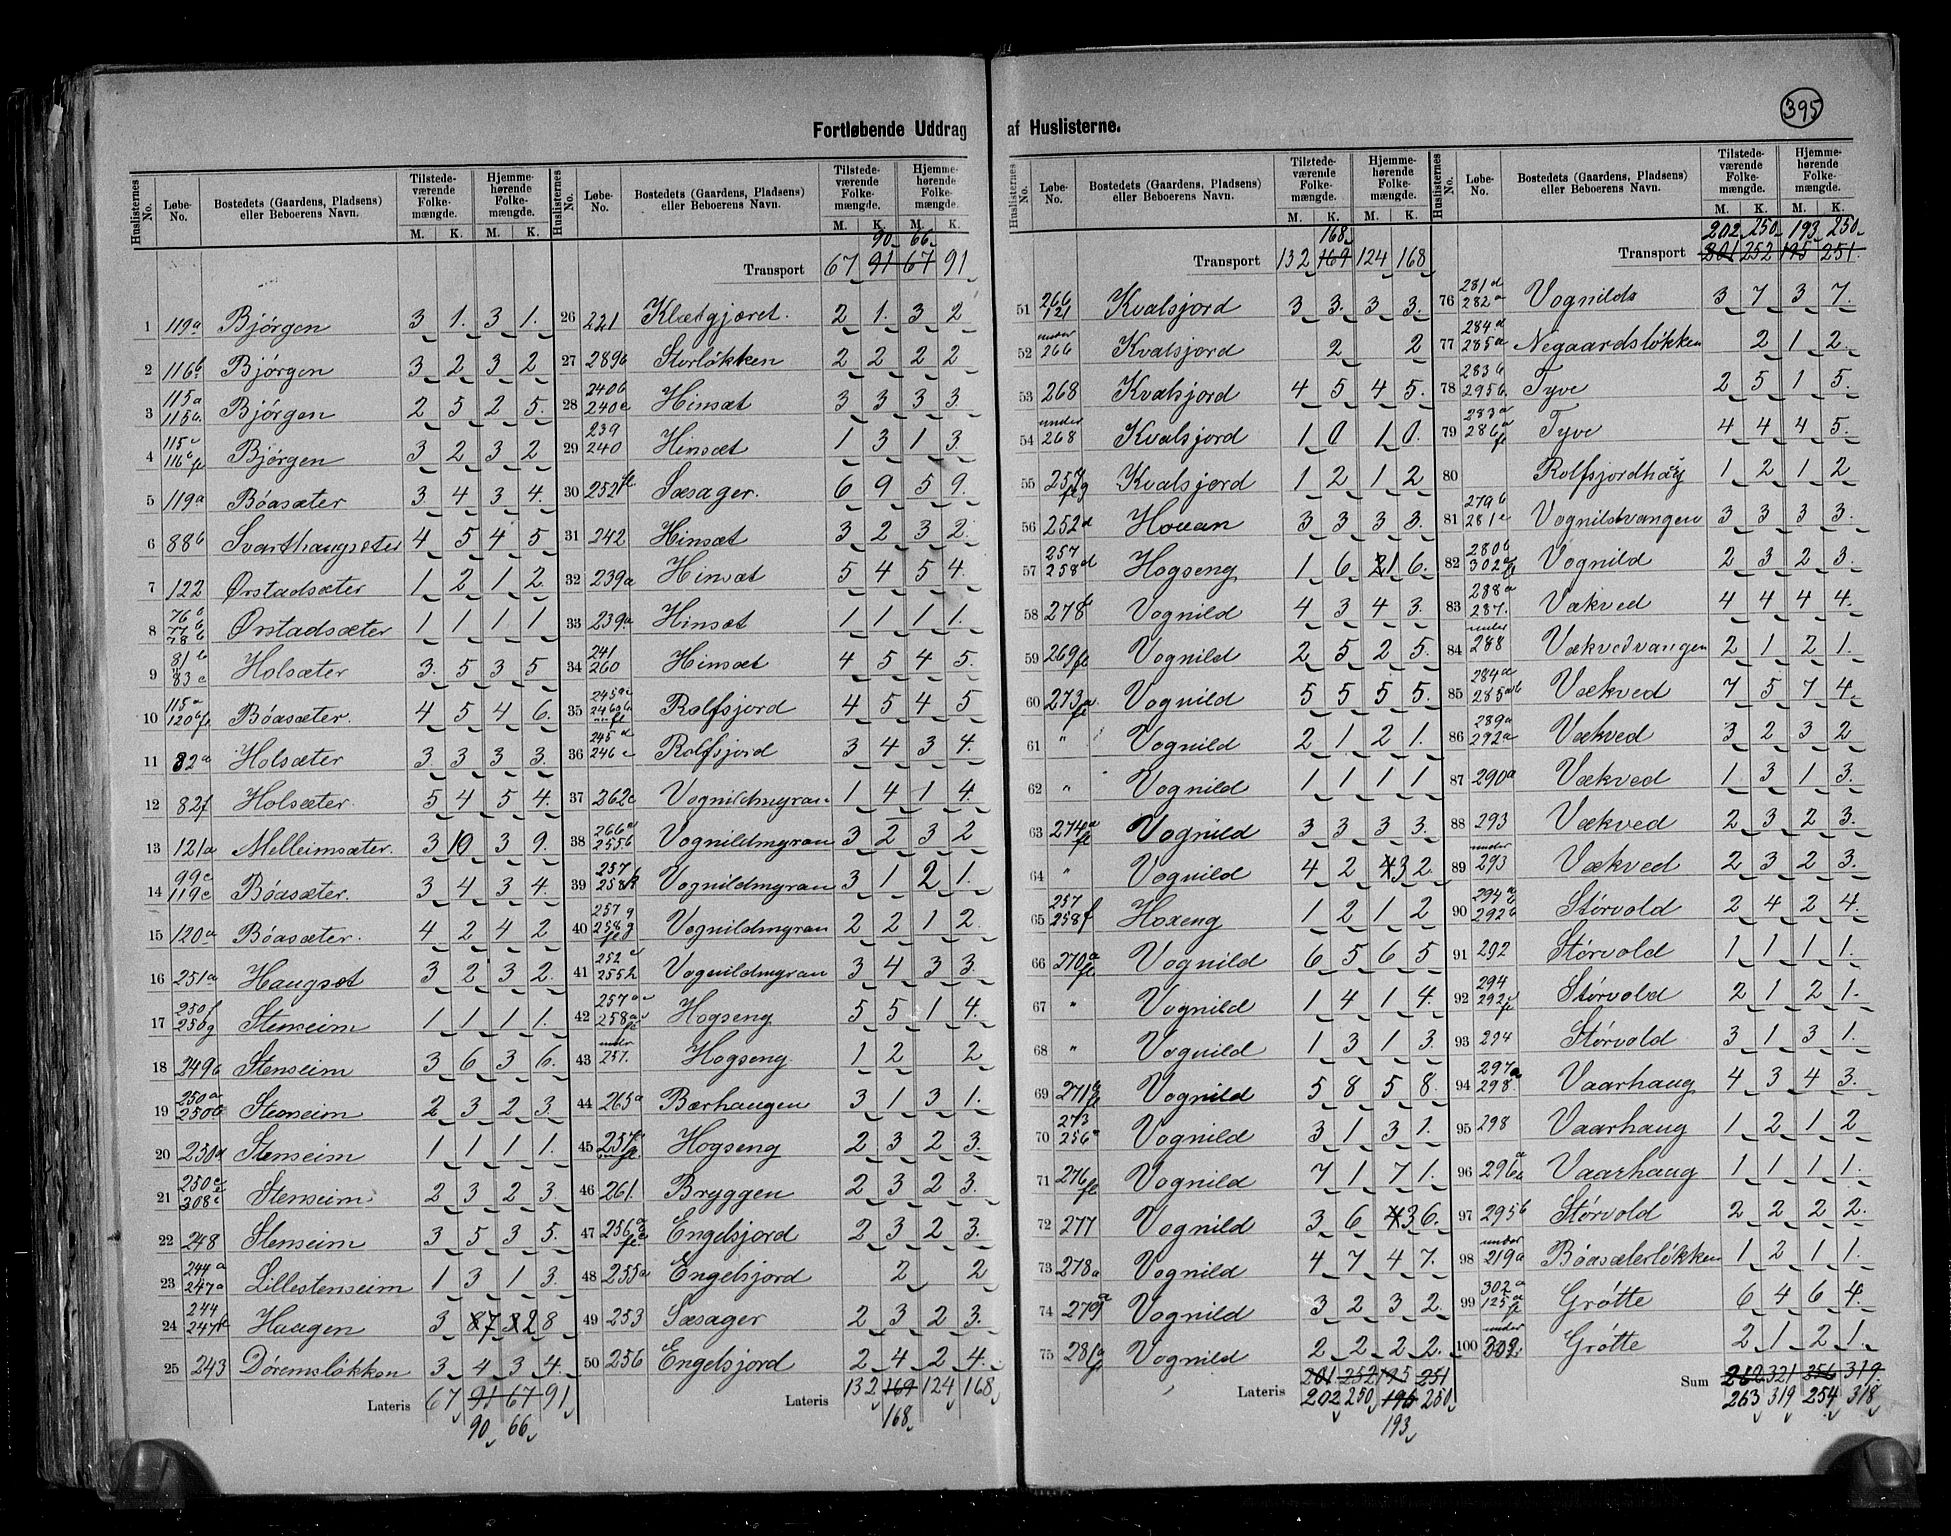 395
Fortløbende Uddrag af Huslisterne.
Huslisternes No. Løbe-No. Bostedets (Gaardens, Pladsens) eller Beboerens Navn. Tilstedeværende Folkemængde. M. K. Hjemmehørende Folkemængde. M. K.
1 119a Bjørgen 3 1. 3 1.
2 116b Bjørgen 3 2 3 2
3 115a 115b. Bjørgen 2 5 2 5.
4 115c 116c fl Bjørgen 3 2 3 2
5 119a Bøasæter 3 4 3 4.
6 88b Svarthaugsæter 4 5 4 5
7 122 Ørstadsæter 1 2 1 2.
8 76b 77b 78b Ørstadsæter 1 1 1 1
9 81b 83c Holsæter 3. 5 3 5
10 115a 120b fl Bøasæter. 4 5 4 6.
11 82a Holsæter 3 3 3 3.
12 82f Holsæter. 5 4 5 4.
13 121a Melleimsæter. 3 10 3 9.
14 99c 119c Bøasæter. 3 4 3 4.
15 120a Bøasæter. 4 2 4 2
16 251a Haugset 3 2 3 2.
17 250f 250g Stenseim 1 1 1 1.
18 249b Stenseim 3 6 3 6.
19 250a 250b Stenseim 2 3 2 3.
20 250d Stenseim 1 1 1 1.
21 250c 208c Stenseim 2 3 2 3.
22 248 Stenseim 3 5 3 5.
23 244a 247a Lillestenseim 1 3 1 3.
24 244 247b Haugen 3 7 2 8
25 243 Døremsløkken 3 4 3 4.
Lateris 67 91 67 91
90 66
90 66
Transport 67 91 67 91
26 221 Klætgjæret. 2 1. 3 2
27 289b Storløkken 2 2 2 2
28 240b 240c Hinsæt 3 3 3 3
29 239 240 Hinsæt 1 3 1 3
30 252 fl Sæsager. 6 9 5 9.
31 242 Hinsæt 3 2 3 2.
32 239a Hinsæt 5 4 5 4.
33 239a Hinsæt 1 1 1 1.
34 241 260 Hinsæt 4 5 4 5.
35 245a 246ab fl Rolfsjord 4 5 4 5
36 245d 246c Rolfsjord 3 4 3 4.
37 262c Vognildmyran 1 4 1 4.
38 266a 255b Vognildmyran 3 2 3 2
39 257f 258k Vognildmyran 3 1 2 1.
40 257g 258g fl Vognildmyran 2 2 1 2.
41 252c 255b Vognildmyran 3 4 3 3.
42 257a 258a fl Hogseng 5 5 1 4.
43 under 257. Hogseng. 1 2 2
44 265a Bærhaugen 3 1 3 1.
45 257 fl Hogseng 2 3 2 3.
46 261. Bryggen 2 3 2 3.
47 256 fl Engelsjord 2 3 2 3.
48 255a Engelsjord 2 2
49 253 Sæsager 2 3 2 3.
50 256 Engelsjord 2 4 2 4.
Lateris 132 169 124 168
168
168
Transport 132 169 124 168
51 266 121 Kvalsjord 3 3. 3 3.
52 under 266 Kvalsjord 2 2
53 268 Kvalsjord 4 5 4 5.
54 under 268 Kvalsjord 1 0 1 0.
55 257 fl g Kvalsjord 1 2 1 2
56 252d Houan 3 3 3 3.
57 257 258d Hogseng 1 6 1 6.
58 278b Vognild 4 3 4 3.
59 269 fl Vognild 2 5 2 5.
60 273a fl Vognild 5 5 5 5.
61 " Vognild 2 1 2 1.
62 " Vognild 1 1 1 1
63 274a fl Vognild 3 3 3 3.
64 " Vognild 4 2 3 2.
65 257 258f Hoxeng 1 2 1 2
66 270a fl Vognild 6 5 6 5
67 " Vognild 1 4 1 4.
68 " Vognild 1 3 1 3
69 271a fl Vognild 5 8 5 8.
70 273 256c Vognild 3 1 3 1.
71 276 fl Vognild 7 1 7 1.
72 277 Vognild 3 6 3 6.
73 278a Vognild 4 7 4 7.
74 279a Vognild 3 2 3 2.
75 281a fl Vognild 2 2 2 2.
Lateris 201 252 195 251
202 250 195 250
193
202 250 193 250
Transport 201 252 195 251.
76 281d 282a Vognilds 3 7 3 7.
77 284d 285a Negaardsløkken 2 1 2.
78 283b 295b. Tyve 2 5 1 5.
79 283a 286a fl Tyve 4 4 4 5.
80 Rolfsjordhaug 1 2 1 2
81 279b 281c Vognildvangen 3 3 3 3.
82 280b 302a fl Vognild 2 3 2 3.
83 288a 287. Vækved 4 4 4 4.
84 under 288 Vækvedvangen 2 1 2 1.
85 284d 285ab Vækved 7 5 7 4.
86 289a 292a Vækved 3 2 3 2
87 290a Vækved 1 3 1 3.
88 293 Vækved 2 3 2 3.
89 under 293 Vækved 2 3 2 3.
90 294a 292b Størvold 2 4 2 4.
91 292 Størvold 1 1 1 1.
92 294 292d fl Størvold 2 1 2 1.
93 294 Størvold 3 1 3 1.
94 297a 298. Vaarhaug 4 3 4 3.
95 298 Vaarhaug 1 2 1 2
96 296a Vaarhaug 1 1 1 1.
97 295b Størvold 2 2 2 2.
98 under 219a Bøasæterløkken 1 2 1 1.
99 302a 125a fl Grøtte 6 4 6 4.
100 under 302. Grøtte 2 1 2 1.
Sum 262 321 256 319.
263 319 254 318